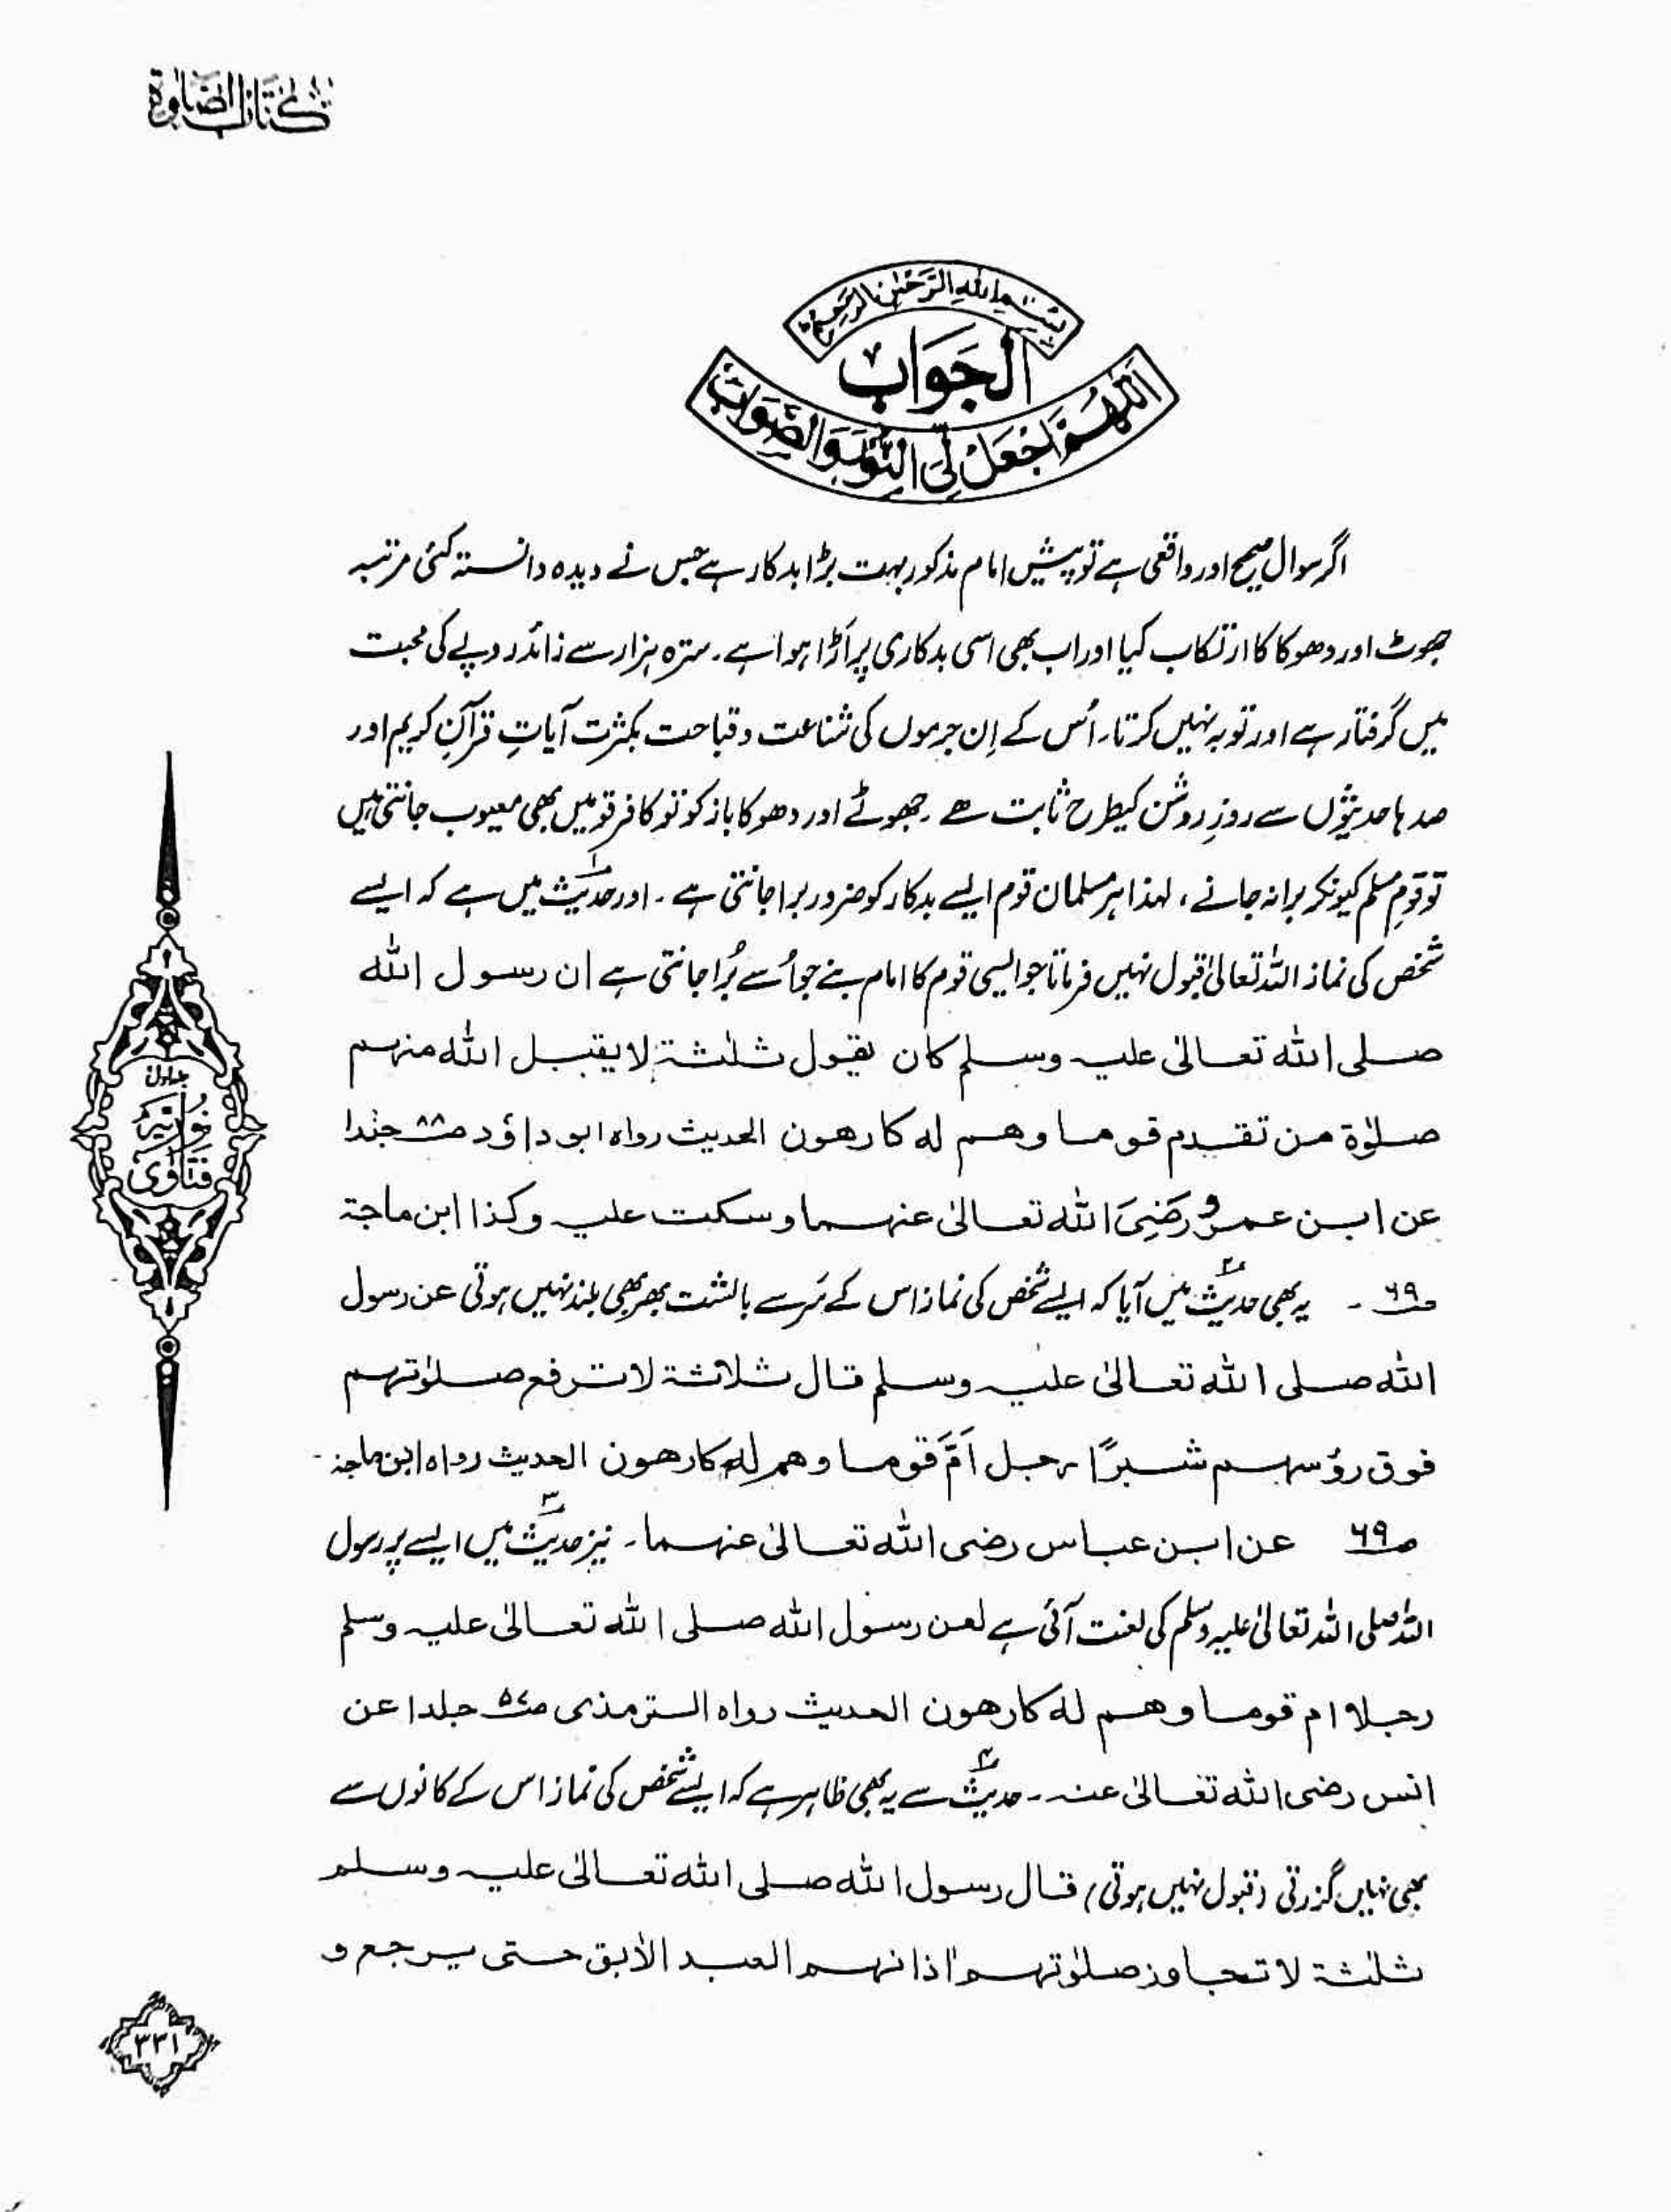 كتاب الصلوة
بسم الله الرحمن الرحيم
الجَوَاب
اَللّٰهُمَّ اجْعَلْ لِّیَ النُّوْرَ وَالصَّوَابَ
اگر سوال صحیح اور واقعی ہے تو پیش امام مذکور بہت بڑا بدکار ہے جس نے دیدہ دانستہ کئی مرتبہ
جھوٹ اور دھوکا کا ارتکاب کیا اور اب بھی اسی بدکاری پر اَڑا ہوا ہے۔ سترہ ہزار سے زائد روپے کی محبت
میں گرفتار ہے اور توبہ نہیں کرتا۔ اُس کے اِن جرموں کی شناعت و قباحت بکثرت آیاتِ قرآنِ کریم اور
صدہا حدیثوں سے روزِ روشن کیطرح ثابت ہے۔ جھوٹے اور دھوکا باز کو تو کافر قومیں بھی معیوب جانتی ہیں
تو قومِ مسلم کیونکر برا نہ جانے، لہذا ہر مسلمان قوم ایسے بدکار کو ضرور برا جانتی ہے۔ اور حدیث۱ میں ہے کہ ایسے
شخص کی نماز اللہ تعالیٰ قبول نہیں فرماتا جو ایسی قوم کا امام بنے جو اُسے بُرا جانتی ہے ان رسول الله
صلى الله تعالىٰ عليه وسلم كان يقول ثلٰثة لا يقبل الله منهم
صلوٰة من تقدم قوما وهم له كارهون الحديث رواه ابو داؤد ص۸۸ جلد۱
عن ابن عمرو رَضِیَ الله تعالىٰ عنهما وسكت عليه وكذا ابن ماجة
ص۶۹ ۔ یہ بھی حدیث۲ میں آیا کہ ایسے شخص کی نماز اس کے سَر سے بالشت بھر بھی بلند نہیں ہوتی عن رسول
الله صلى الله تعالىٰ عليه وسلم قال ثلاثة لا ترفع صلوٰتهم
فوق رؤسهم شبرًا رجل اَمَّ قوما وهم له كارهون الحديث رواه ابن ماجه۔
ص۶۹ عن ابن عباس رضی الله تعالىٰ عنهما۔ نیز حدیث۳ میں ایسے پر رسول
اللہ صلی اللہ تعالیٰ علیہ وسلم کی لعنت آئی ہے لعن رسول الله صلى الله تعالىٰ عليه وسلم
رجلا ام قوما وهم له كارهون الحديث رواه الترمذى ص۴۷ جلد۱ عن
انس رضی الله تعالىٰ عنه۔ حدیث۴ سے یہ بھی ظاہر ہے کہ ایسے شخص کی نماز اس کے کانوں سے
بھی نہیں گزرتی (قبول نہیں ہوتی) قال رسول الله صلى الله تعالىٰ عليه وسلم
ثلٰثة لا تجاوز صلوٰتهم اٰذانهم العبد الاٰبق حتى يرجع و
جلد اول
فتاوٰی نوریہ
۳۳۱